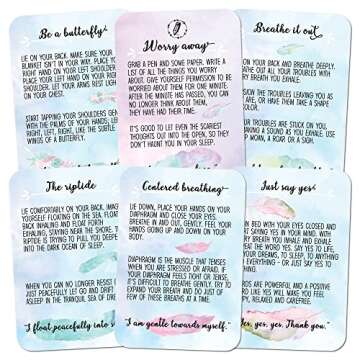 Be a butterfly
LIE ON YOUR BACK. MAKE SURE YOUR
BLANKET ISN'T IN YOUR WAY. PLACE YOUR
RIGHT HAND ON YOUR LEFT SHOULDER.
PLACE YOUR LEFT HAND ON YOUR RIGHT
SHOULDER. LET YOUR ARMS REST
ON YOUR CHEST.
START TAPPING YOUR SHOULDERS GENTLY
WITH THE PALMS OF YOUR HANDS, LEFT,
RIGHT, LEFT, RIGHT, LIKE THE SUBTLE
WINGS OF A BUTTERFLY.
Worry away
GRAB A PEN AND SOME PAPER. WRITE A
LIST OF ALL THE THINGS YOU WORRY
ABOUT. GIVE YOURSELF PERMISSION TO BE
WORRIED ABOUT THEM FOR ONE MINUTE.
AFTER THE MINUTE HAS PASSED, YOU CAN
NO LONGER THINK ABOUT THEM,
THEY HAVE HAD THEIR TIME.
IT'S GOOD TO LET EVEN THE SCARIEST
THOUGHTS OUT INTO THE OPEN, SO THEY
DON'T HAUNT YOU IN YOUR SLEEP.
Breathe it out
ON YOUR BACK AND BREATHE DEEPLY.
BREATHE OUT ALL YOUR TROUBLES WITH
BREATH YOU EXHALE.
THE TROUBLES LEAVING YOU AS
OR HAVE THEM TAKE A SHAPE
OR COLOR.
TROUBLES ARE STUCK ON YOU,
MAKING A SOUND AS YOU EXHALE. USE
MOAN, A ROAR OR A SIGH.
The riptide
LIE COMFORTABLY ON YOUR BACK.
YOURSELF FLOATING ON THE SEA, FLOAT
BACK INHALING AND FLOAT FORTH
EXHALING, STAYING NEAR THE SHORE. THE
RIPTIDE IS TRYING TO PULL YOU DEEPER
INTO THE DARK OCEAN OF SLEEP.
WHEN YOU CAN NO LONGER RESIST
JUST PEACEFULLY LET GO AND DRIFT
ASLEEP IN THE TRANQUIL SEA OF
"I float peacefully into
Centered breathing
LIE DOWN, PLACE YOUR HANDS ON YOUR
DIAPHRAGM AND CLOSE YOUR EYES.
BREATHE IN AND OUT, GENTLY. FEEL YOUR
HANDS GOING UP AND DOWN ON YOUR
BODY.
DIAPHRAGM IS THE MUSCLE THAT TENSES
WHEN YOU ARE STRESSED OR AFRAID. IF
YOUR DIAPHRAGM FEELS TIGHT OR TENSE,
IT'S DIFFICULT TO BREATHE GENTLY. TRY TO
EXPAND YOUR BREATH MORE AND JUST OF
FEW OF THESE BREATHS AT A TIME.
"I am gentle towards myself."
Just say yes!
BED WITH YOUR EYES CLOSED AND
START SAYING YES IN YOUR MIND. WITH
BREATH YOU INHALE AND EXHALE
THE WORD YES. SAY YES TO LIFE,
YOUR DREAMS, TO SLEEP, TO ANYTHING
EVERYTHING - OR JUST SAY YES TO
IS A POWERFUL AND A POSITIVE
WORD LIKE YES WILL MAKE YOU FEEL
HAPPY, RELAXED AND CAREFREE.
yes, yes, yes. Thank you."